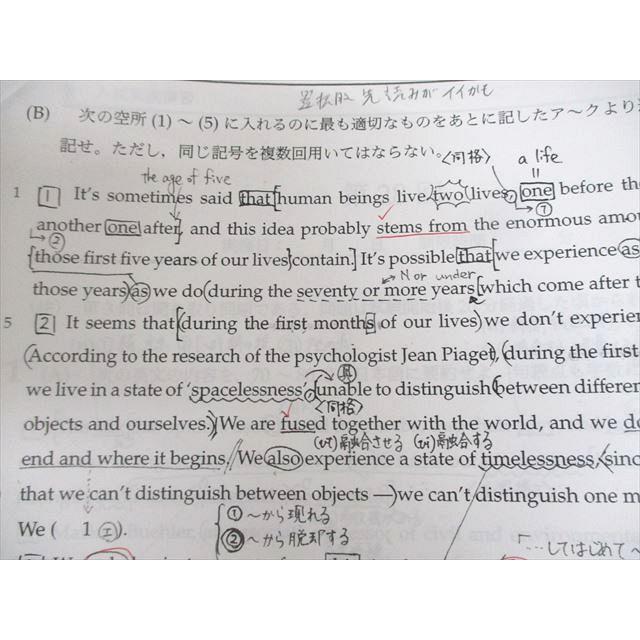 登校段 先読みがイイかも
(B) 次の空所 (1) ～ (5) に入れるのに最も適切なものをあとに記したア～クより
記せ。ただし，同じ記号を複数回用いてはならない。
〈同格〉
a life
the age of five
1 1 It's sometimes said that human beings live two lives, one before the
another one after, and this idea probably stems from the enormous amo
② ⑦
those first five years of our lives contain. It's possible that we experience as
N or under
those years as we do (during the seventy or more years [which come after t
5 2 It seems that (during the first months of our lives) we don't experien
(According to the research of the psychologist Jean Piaget), (during the first
具
we live in a state of 'spacelessness', unable to distinguish between differen
〈同格〉
objects and ourselves. We are fused together with the world, and we do
(vt) 融合させる (vi) 融合する
end and where it begins. We also experience a state of timelessness, sinc
that we can't distinguish between objects — we can't distinguish one m
We ( 1 エ ).
① ～から現れる
② ～から脱却する
…してはじめて～